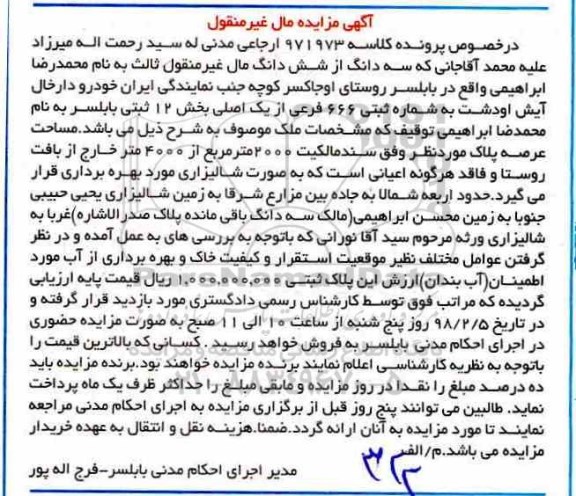 آگهی مزایده مال غیرمنقول
درخصوص پرونده کلاسه ۹۷۱۹۷۳ ارجاعی مدنی له سید رحمت اله میرزاد
علیه محمد آقاجانی که سه دانگ از شش دانگ مال غیرمنقول ثالث به نام محمدرضا
ابراهیمی واقع در بابلسر روستای اوجاکسر کوچه جنب نمایندگی ایران خودرو دارخال
آیش اودشت به شماره ثبتی ۶۶۶ فرعی از یک اصلی بخش ۱۲ ثبتی بابلسر به نام
محمدضا ابراهیمی توقیف که مشخصات ملک موصوف به شرح ذیل می باشد.مساحت
عرصه پلاک موردنظر وفق سندمالکیت ۲۰۰۰مترمربع از ۴۰۰۰ متر خارج از بافت
روستا و فاقد هرگونه اعیانی است که به صورت شالیزاری مورد بهره برداری قرار
می گیرد.حدود اربعه شمالا به جاده بین مزارع شرقا به زمین شالیزاری یحیی حبیبی
جنوبا به زمین محسن ابراهیمی(مالک سه دانگ باقی مانده پلاک صدرالاشاره)غربا به
شالیزاری ورثه مرحوم سید آقا نورانی که باتوجه به بررسی های به عمل آمده و در نظر
گرفتن عوامل مختلف نظیر موقعیت استقرار و کیفیت خاک و بهره برداری از آب مورد
اطمینان(آب بندان)ارزش این پلاک ثبتی ۱,۰۰۰,۰۰۰,۰۰۰ ریال قیمت پایه ارزیابی
گردیده که مراتب فوق توسط کارشناس رسمی دادگستری مورد بازدید قرار گرفته و
در تاریخ ۹۸/۲/۵ روز پنج شنبه از ساعت ۱۰ الی ۱۱ صبح به صورت مزایده حضوری
در اجرای احکام مدنی بابلسر به فروش خواهد رسید . کسانی که بالاترین قیمت را
باتوجه به نظریه کارشناسی اعلام نمایند برنده مزایده خواهند بود.برنده مزایده باید
ده درصد مبلغ را نقدا در روز مزایده و مابقی مبلغ را حداکثر ظرف یک ماه پرداخت
نماید. طالبین می توانند پنج روز قبل از برگزاری مزایده به اجرای احکام مدنی مراجعه
نمایند تا مورد مزایده به آنان ارائه گردد.ضمنا.هزینه نقل و انتقال به عهده خریدار
مزایده می باشد.م/الف
مدیر اجرای احکام مدنی بابلسر-فرج اله پور